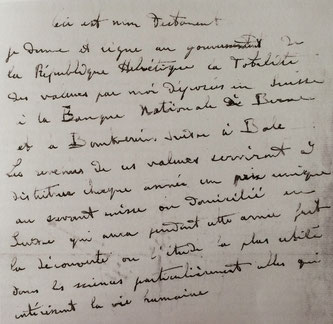 Ceci est mon Testament
je donne et lègue au gouvernement de
la République Helvétique la Totalité
des valeurs par moi déposées en Suisse
à la Banque Nationale de Berne
et à Bankverein Suisse à Bâle
Les revenus de ces valeurs serviront à
distribuer chaque année un prix unique
au savant suisse ou domicilié en
Suisse qui aura pendant cette année fait
la découverte ou l'étude la plus utile
dans les sciences particulièrement celles qui
intéressent la vie humaine